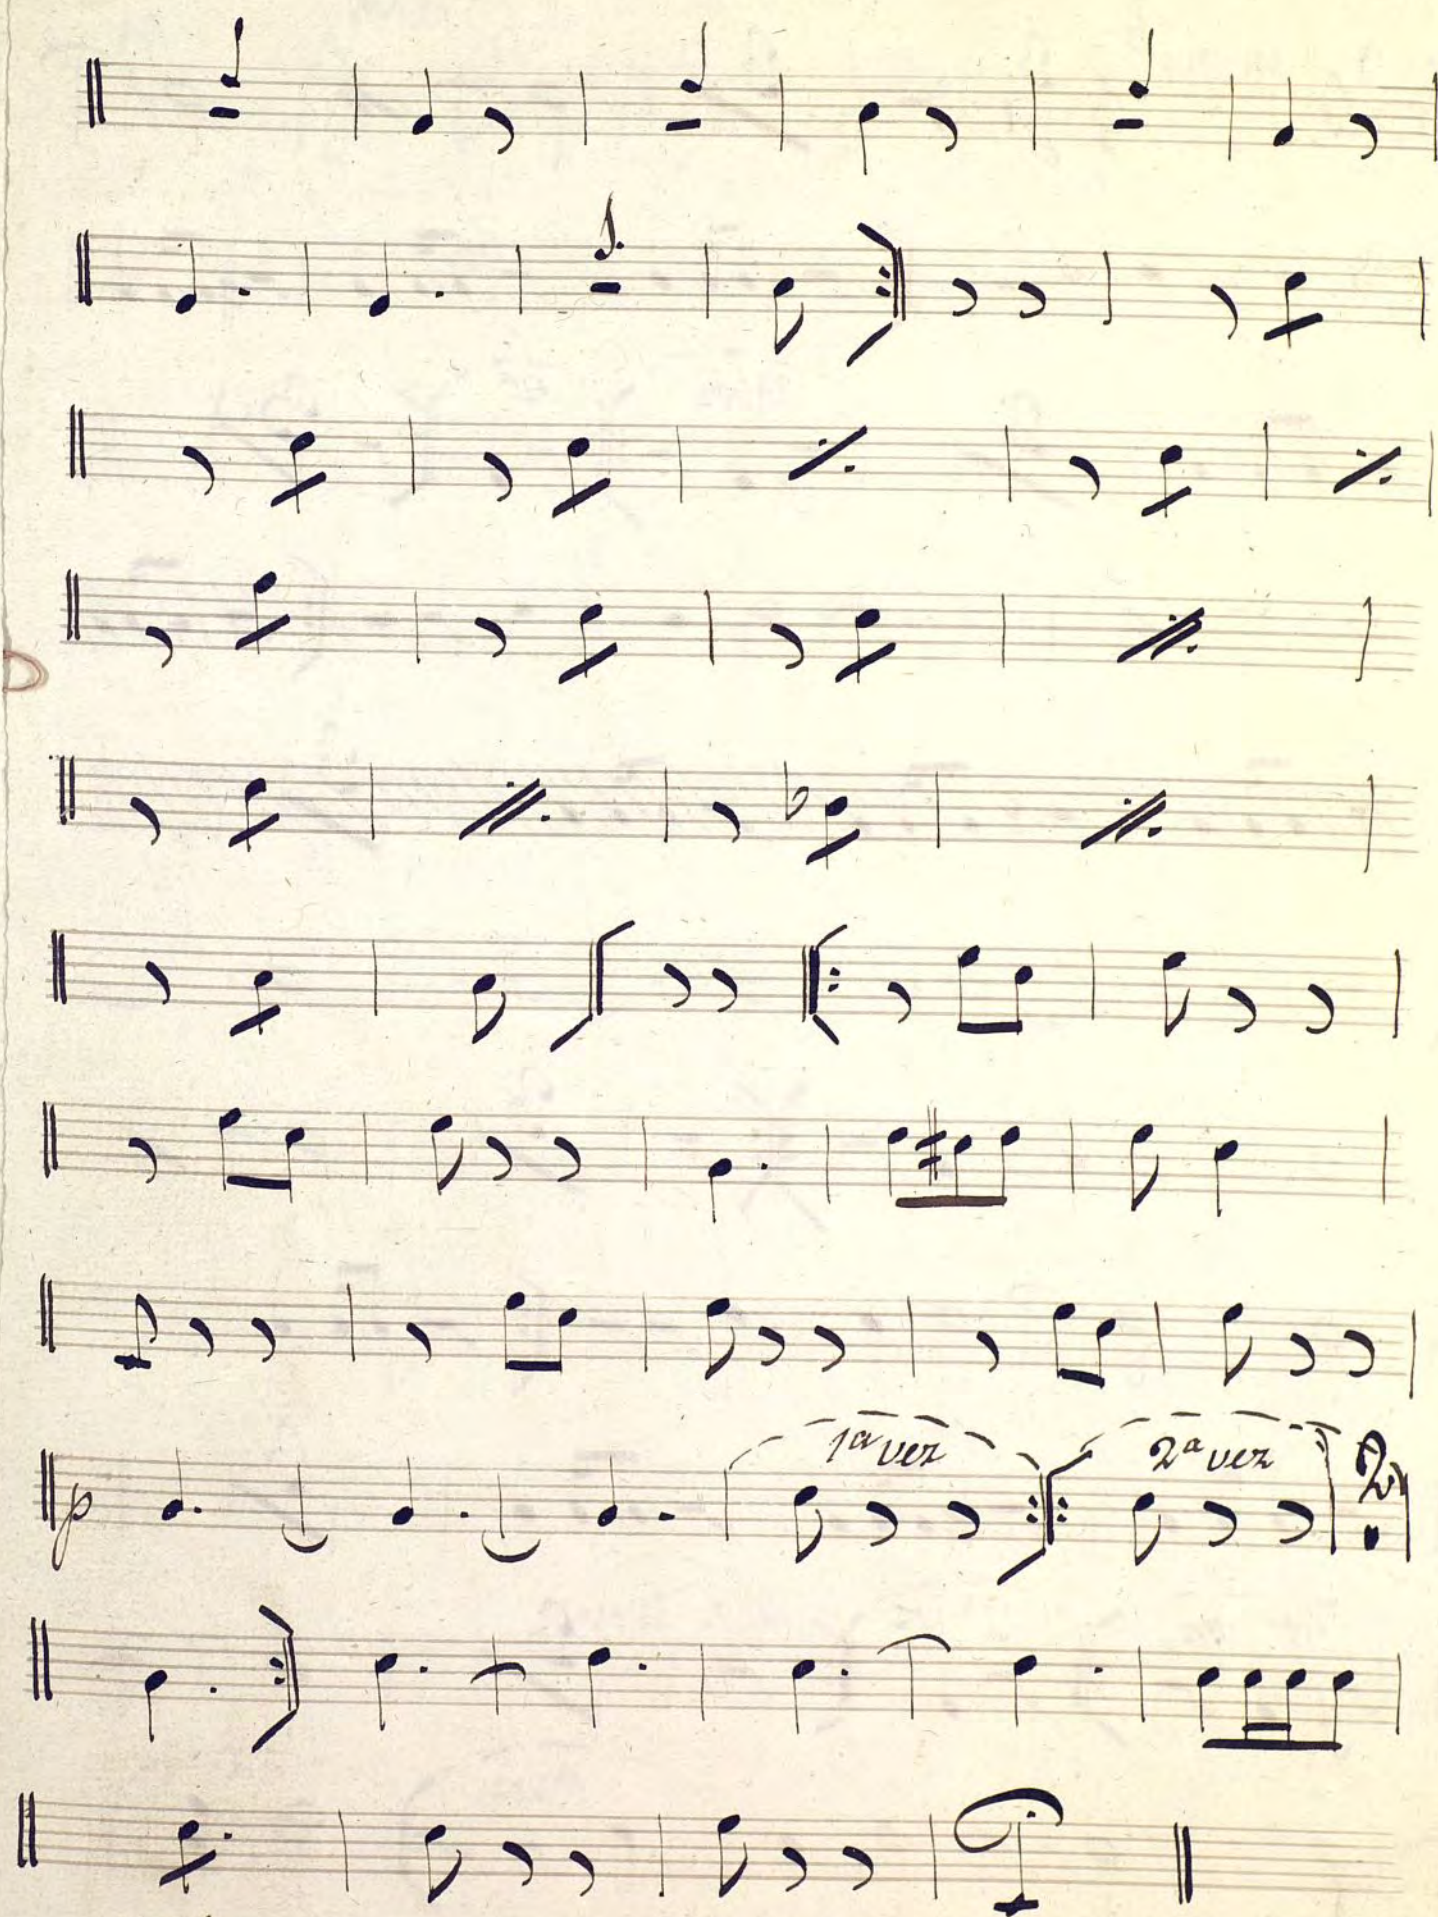 p 1ª vez 2ª vez 2